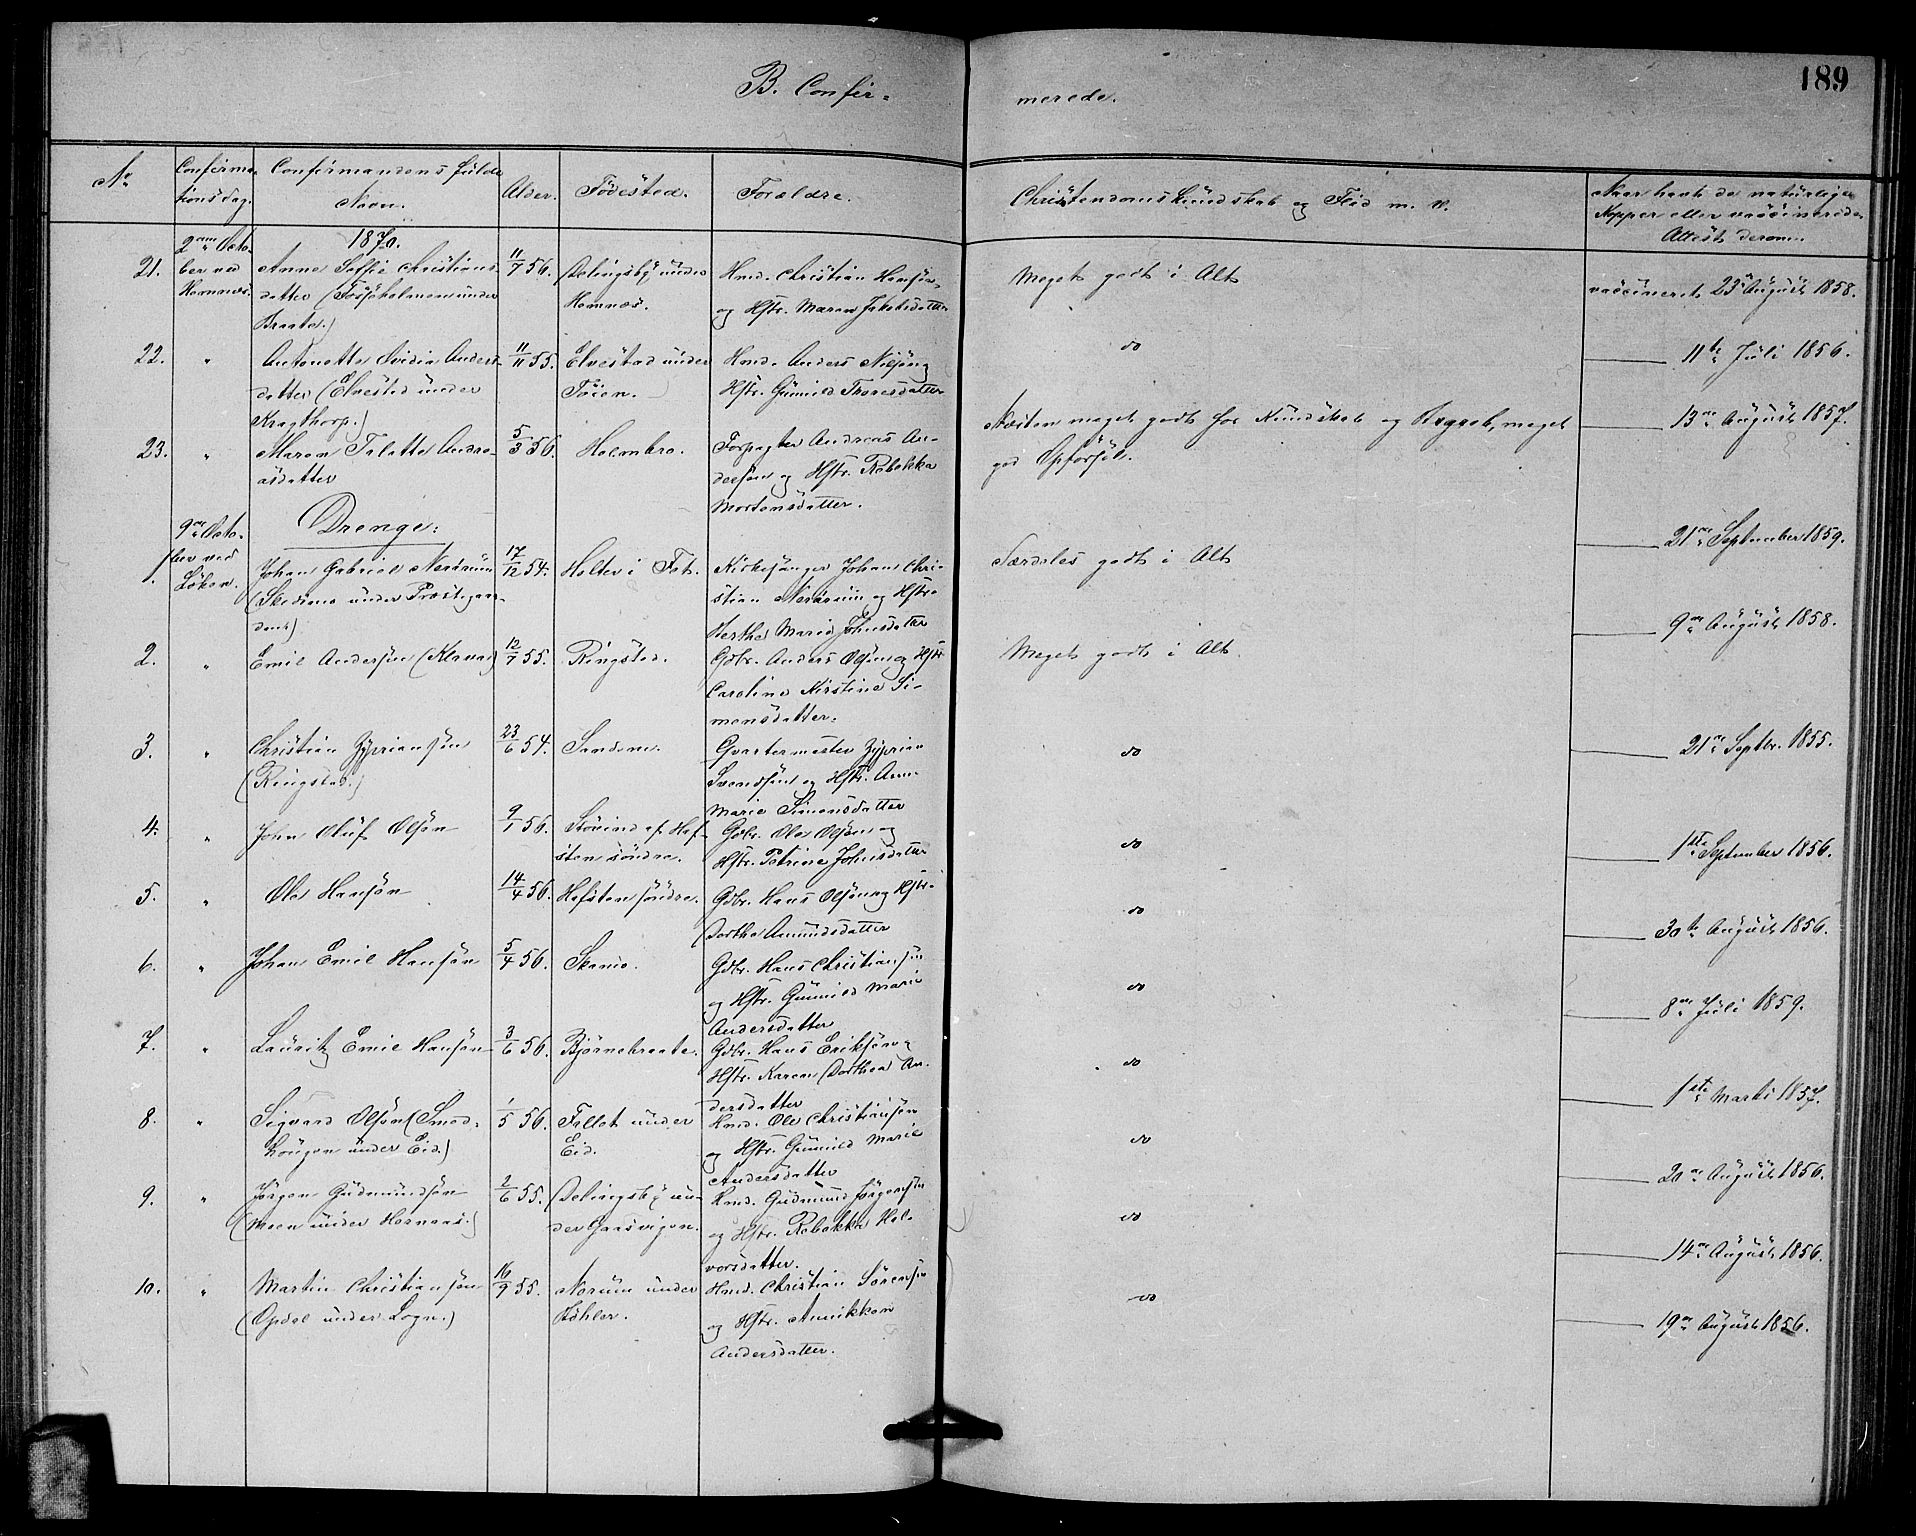 189
B. Confir-
merede.
No
Confirma-
tionsdag.
Confirmandens fulde
Navn.
Alder.
Fødested.
Forældre.
Christendomskundskab og Flid m. v.
Naar havt de naturlige
Kopper eller vaccinerede
Attest derom.
1870.
21.
2den Octo-
ber ved
Hemnes.
Anne Sofie Christians-
datter (Fosseholmen under
Braate.)
11/7 56.
Delingsby under
Hemnæs.
Hmd. Christian Hansøn
og Hstr. Maren Jakobsdatter
Meget godt i Alt
vaccineret 23de August 1858.
22.
"
Antonette Ovidia Anders-
datter (Elvestad under
Kragthorp.)
11/11 55.
Elvestad under
Tøien.
Hmd. Anders Nilsøn og
Hstr. Gunild Thoresdatter
do
11te Juli 1856.
23.
"
Maren Talette Andre-
asdatter
5/3 56.
Holmbro.
Forpagter Andreas An-
dersøn og Hstr. Rebekka
Mortensdatter.
Næsten meget godt for Kundskab og Begreb, meget
god Opførsel.
13de August 1857.
Drenge:
1.
9de Octo-
ber ved
Løken.
Johan Gabriel Nerdrum
(Skedsmo under Præstegaar-
den.)
17/12 54.
Holter i Fet.
Kirkesanger Johan Chri-
stian Nerdrum og Hstr.
Herthe Marie Johnsdatter
Særdeles godt i Alt
21de September 1859.
2.
"
Emil Andersøn (Kleven)
12/7 55.
Ringstad.
Gdbr. Anders Olsøn og Hstr.
Caroline Kirstine Si-
mensdatter.
Meget godt i Alt.
9de August 1858.
3.
"
Christian Zypriansøn
(Ringstad.)
23/6 54.
Sandem.
Qvartermester Zyprian
Svendsøn og Hstr. Anne
Marie Simensdatter
do
21de Septbr. 1855.
4.
"
John Oluf Olsøn
9/1 56.
Støvind af Hof-
sten søndre.
Gdbr. Ole Olsøn og
Hstr. Petrine Johnsdatter
do
1ste September 1856.
5.
"
Ole Hansøn
14/4 56.
Hofsten søndre.
Gdbr. Hans Olsøn og Hstr.
Dorthe Amundsdatter
do
30te August 1856.
6.
"
Johan Emil Hansøn
5/4 56.
Skamo.
Gdbr. Hans Christiansøn
og Hstr. Gunild Marie
Andersdatter
do
8de Juli 1859.
7.
"
Lauritz Emil Hansøn
3/6 56.
Bjørnebraate.
Gdbr. Hans Eriksøn og
Hstr. Karen Dorthea An-
dersdatter
do
1ste Marts 1857.
8.
"
Sigvard Olsøn (Smed-
høugen under Eid.)
1/5 56.
Fallet under
Eid.
Hmd. Ole Christiansøn
og Hstr. Gunild Marie
Andersdatter
do
20de August 1856.
9.
"
Jørgen Gudmundsøn
(Moen under Hemnæs.)
2/6 55.
Delingsby un-
der Gaasvigen.
Hmd. Gudmund Jørgensøn
og Hstr. Rebekka Hal-
vorsdatter.
do
14de August 1856.
10.
"
Martin Christiansøn
(Opdal under Logn.)
16/9 55.
Norum under
Kohler.
Hmd. Christian Sørensøn
og Hstr. Annikken
Andersdatter.
do
19de August 1856.